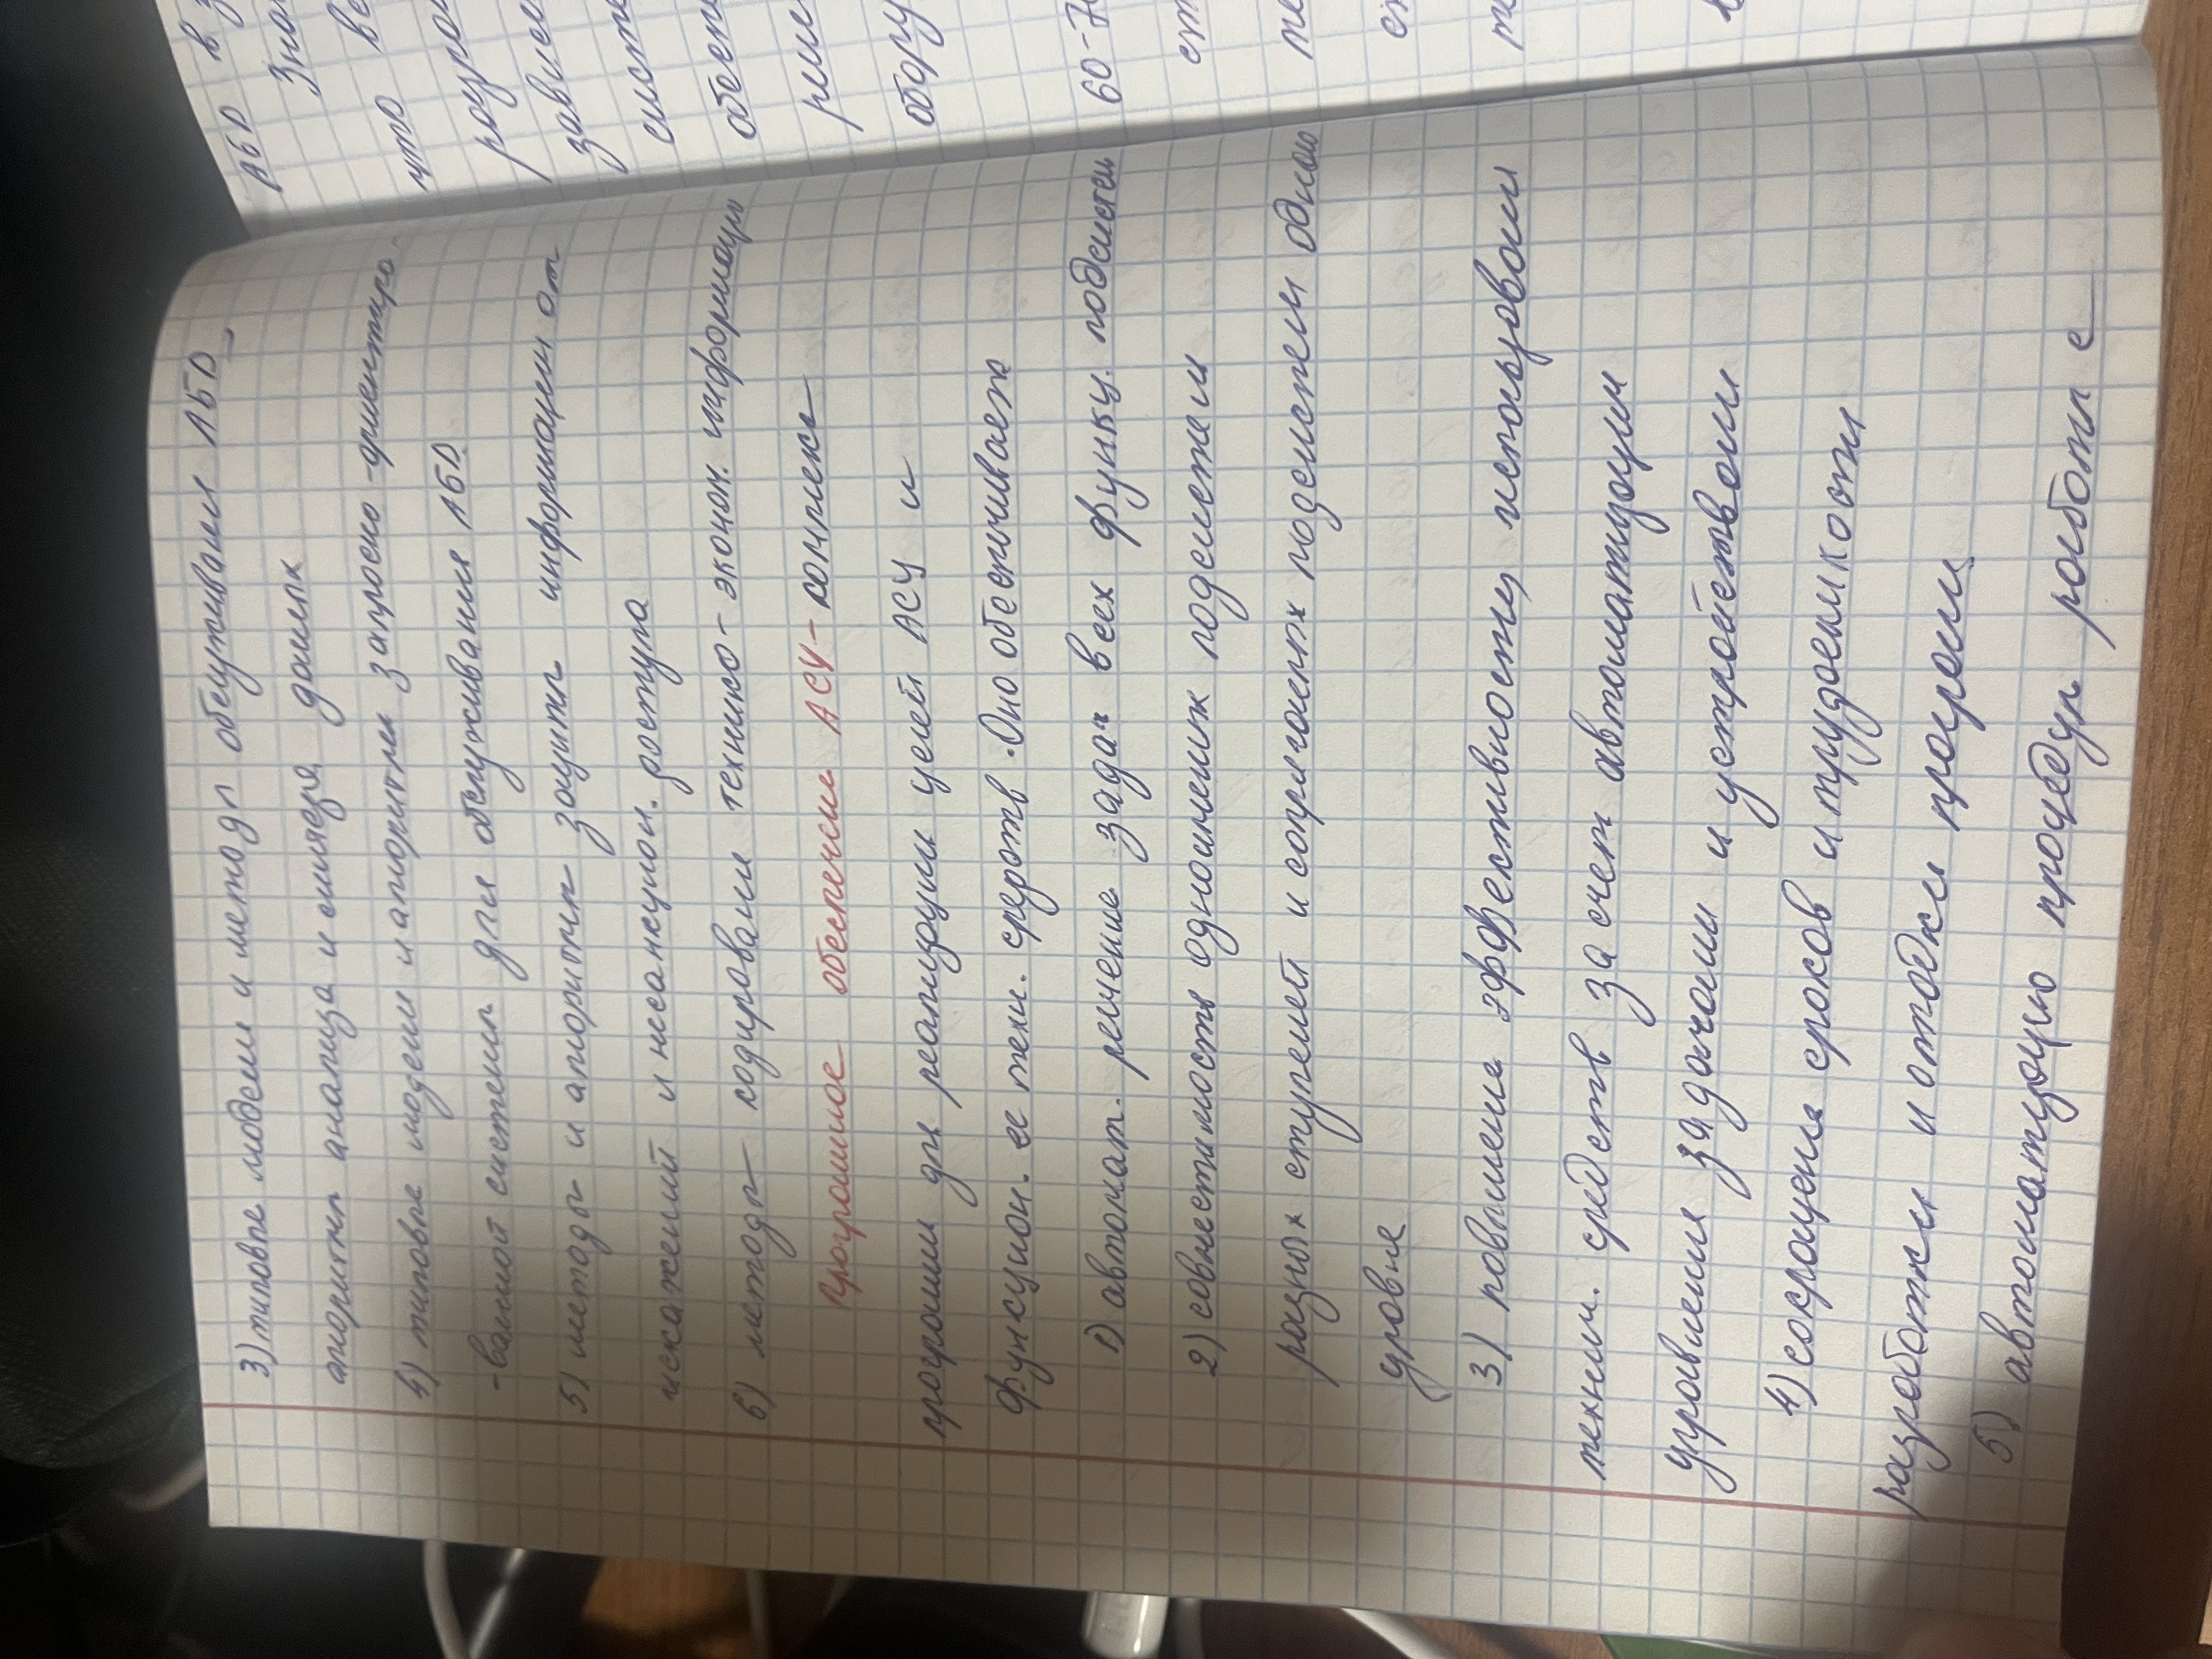 3) типовые модели и методы обслуживания АБД,
алгоритмы анализа и синтеза данных
4) типовые модели и алгоритмы запросно-ориентиро
-ванной системы для обслуживания АБД
5) методы и алгоритмы защиты информации от
искажений и несанкцион. доступа
6) методы кодирования технико-эконом. информации
Программное обеспечение АСУ - комплекс
программ для реализации целей АСУ и
функцион. ее техн. средств. Оно обеспечивает
1) автомат. решение задач всех функц. подсистем
2) совместимость одноименных подсистем
разных ступеней и сопрягаемых подсистем одного
уровня
3) повышение эффективность использования
технич. средств за счет автоматизации
управления задачами и устройствами
4) сокращение сроков и трудоемкости
разработки и отладки программ
5) автоматизацию процедур работы с
АБД в
Знач
что ве
разра
завис
систе
обесп
реше
обору
60-70